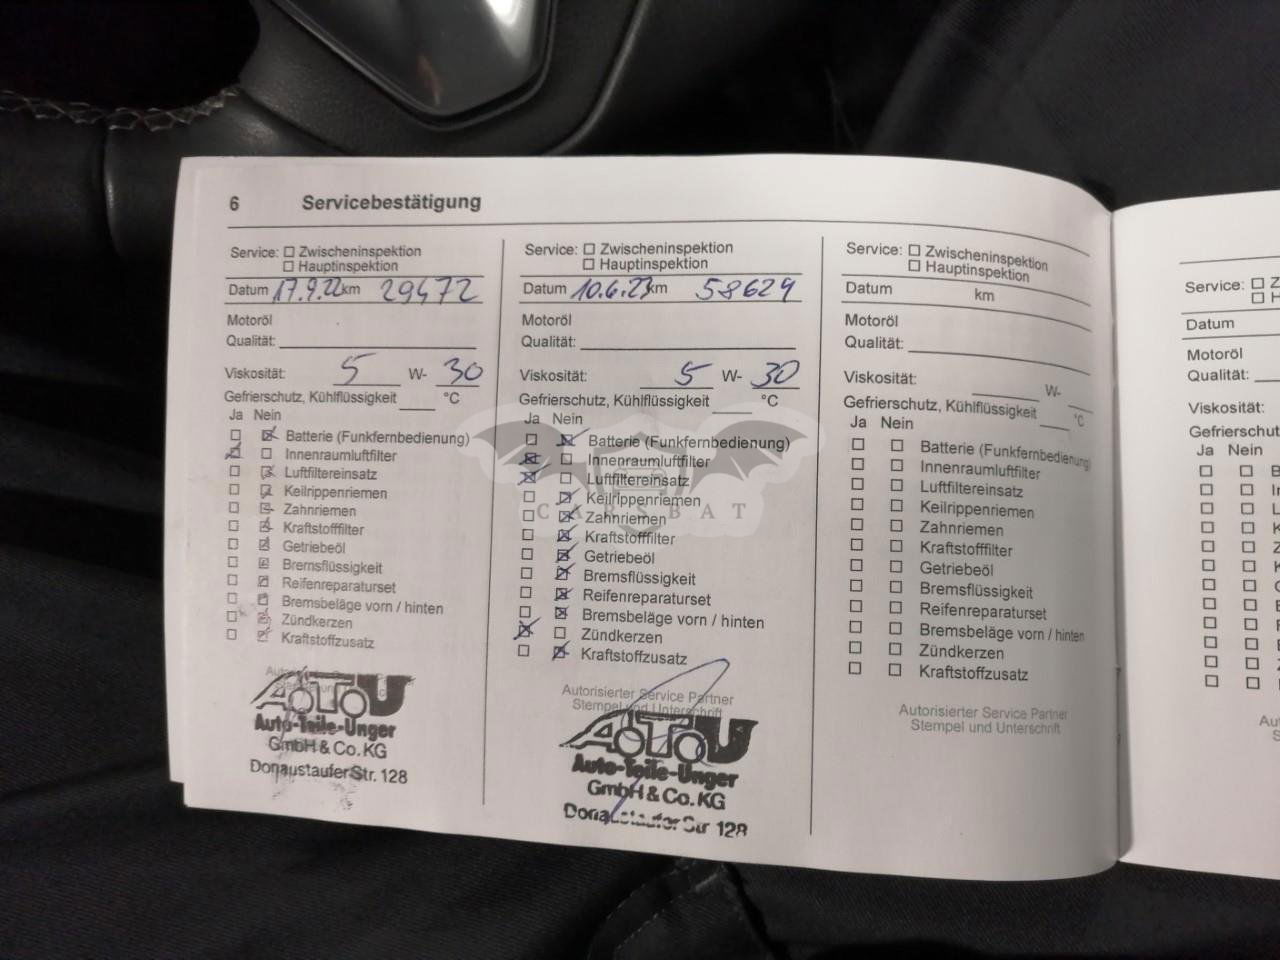 6 Servicebestätigung
Service: ☐ Zwischeninspektion
☐ Hauptinspektion
Datum 17.9.22 km 29472
Motoröl
Qualität:
Viskosität: 5 W- 30
Gefrierschutz, Kühlflüssigkeit °C
Ja Nein
Batterie (Funkfernbedienung)
Innenraumluftfilter
Luftfiltereinsatz
Keilrippenriemen
Zahnriemen
Kraftstofffilter
Getriebeöl
Bremsflüssigkeit
Reifenreparaturset
Bremsbeläge vorn / hinten
Zündkerzen
Kraftstoffzusatz
Auto-Teile-Unger
GmbH & Co. KG
Donaustaufer Str. 128
Service: ☐ Zwischeninspektion
☐ Hauptinspektion
Datum 10.6.23 km 58629
Motoröl
Qualität:
Viskosität: 5 W- 30
Gefrierschutz, Kühlflüssigkeit °C
Ja Nein
Batterie (Funkfernbedienung)
Innenraumluftfilter
Luftfiltereinsatz
Keilrippenriemen
Zahnriemen
Kraftstofffilter
Getriebeöl
Bremsflüssigkeit
Reifenreparaturset
Bremsbeläge vorn / hinten
Zündkerzen
Kraftstoffzusatz
Autorisierter Service Partner
Stempel und Unterschrift
Auto-Teile-Unger
GmbH & Co. KG
Donaustaufer Str 128
Service: ☐ Zwischeninspektion
☐ Hauptinspektion
Datum km
Motoröl
Qualität:
Viskosität: W-
Gefrierschutz, Kühlflüssigkeit °C
Ja Nein
Batterie (Funkfernbedienung)
Innenraumluftfilter
Luftfiltereinsatz
Keilrippenriemen
Zahnriemen
Kraftstofffilter
Getriebeöl
Bremsflüssigkeit
Reifenreparaturset
Bremsbeläge vorn / hinten
Zündkerzen
Kraftstoffzusatz
Autorisierter Service Partner
Stempel und Unterschrift
Service: ☐ Z
☐ H
Datum
Motoröl
Qualität:
Viskosität:
Gefrierschutz
Ja Nein
CARSBAT